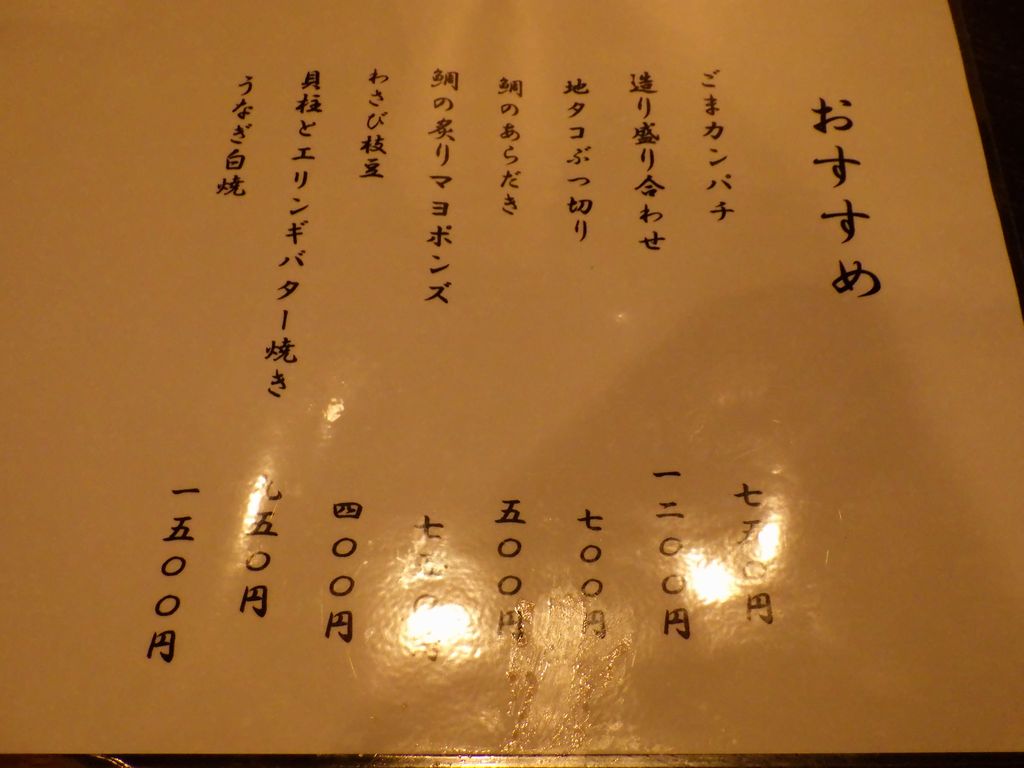 おすすめ
ごまカンパチ 七五〇円
造り盛り合わせ 一二〇〇円
地タコぶつ切り 七〇〇円
鯛のあらだき 五〇〇円
鯛の炙りマヨポンズ
わさび枝豆 四〇〇円
貝柱とエリンギバター焼き 九五〇円
うなぎ白焼 一五〇〇円